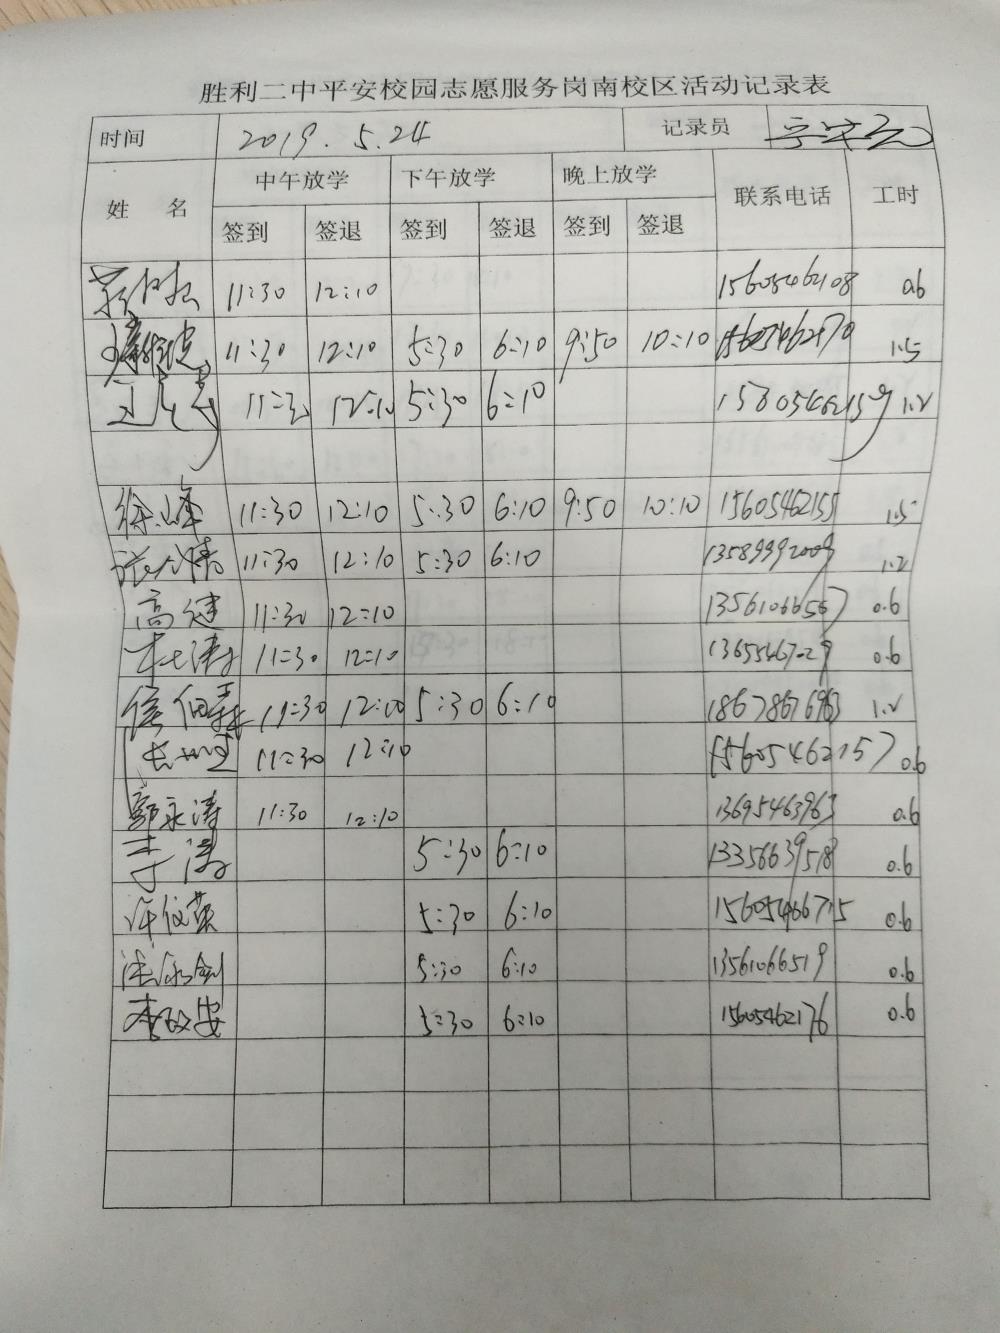 胜利二中平安校园志愿服务岗南校区活动记录表
时间 2019.5.24 记录员
姓 名 中午放学 下午放学 晚上放学 联系电话 工时
签到 签退 签到 签退 签到 签退
11:30 12:10 15605462108 0.6
11:30 12:10 5:30 6:10 9:50 10:10 15605462170 1.5
11:30 12:10 5:30 6:10 15605462159 1.2
徐峰 11:30 12:10 5:30 6:10 9:50 10:10 15605462155 1.5
11:30 12:10 5:30 6:10 13589992009 1.2
高健 11:30 12:10 13561066567 0.6
杜涛 11:30 12:10 13655467029 0.6
11:30 12:10 5:30 6:10 18678676963 1.2
11:30 12:10 15605462157 0.6
郭永涛 11:30 12:10 13695463963 0.6
李涛 5:30 6:10 13356639518 0.6
5:30 6:10 15605466715 0.6
5:30 6:10 13561066519 0.6
5:30 6:10 15605462176 0.6